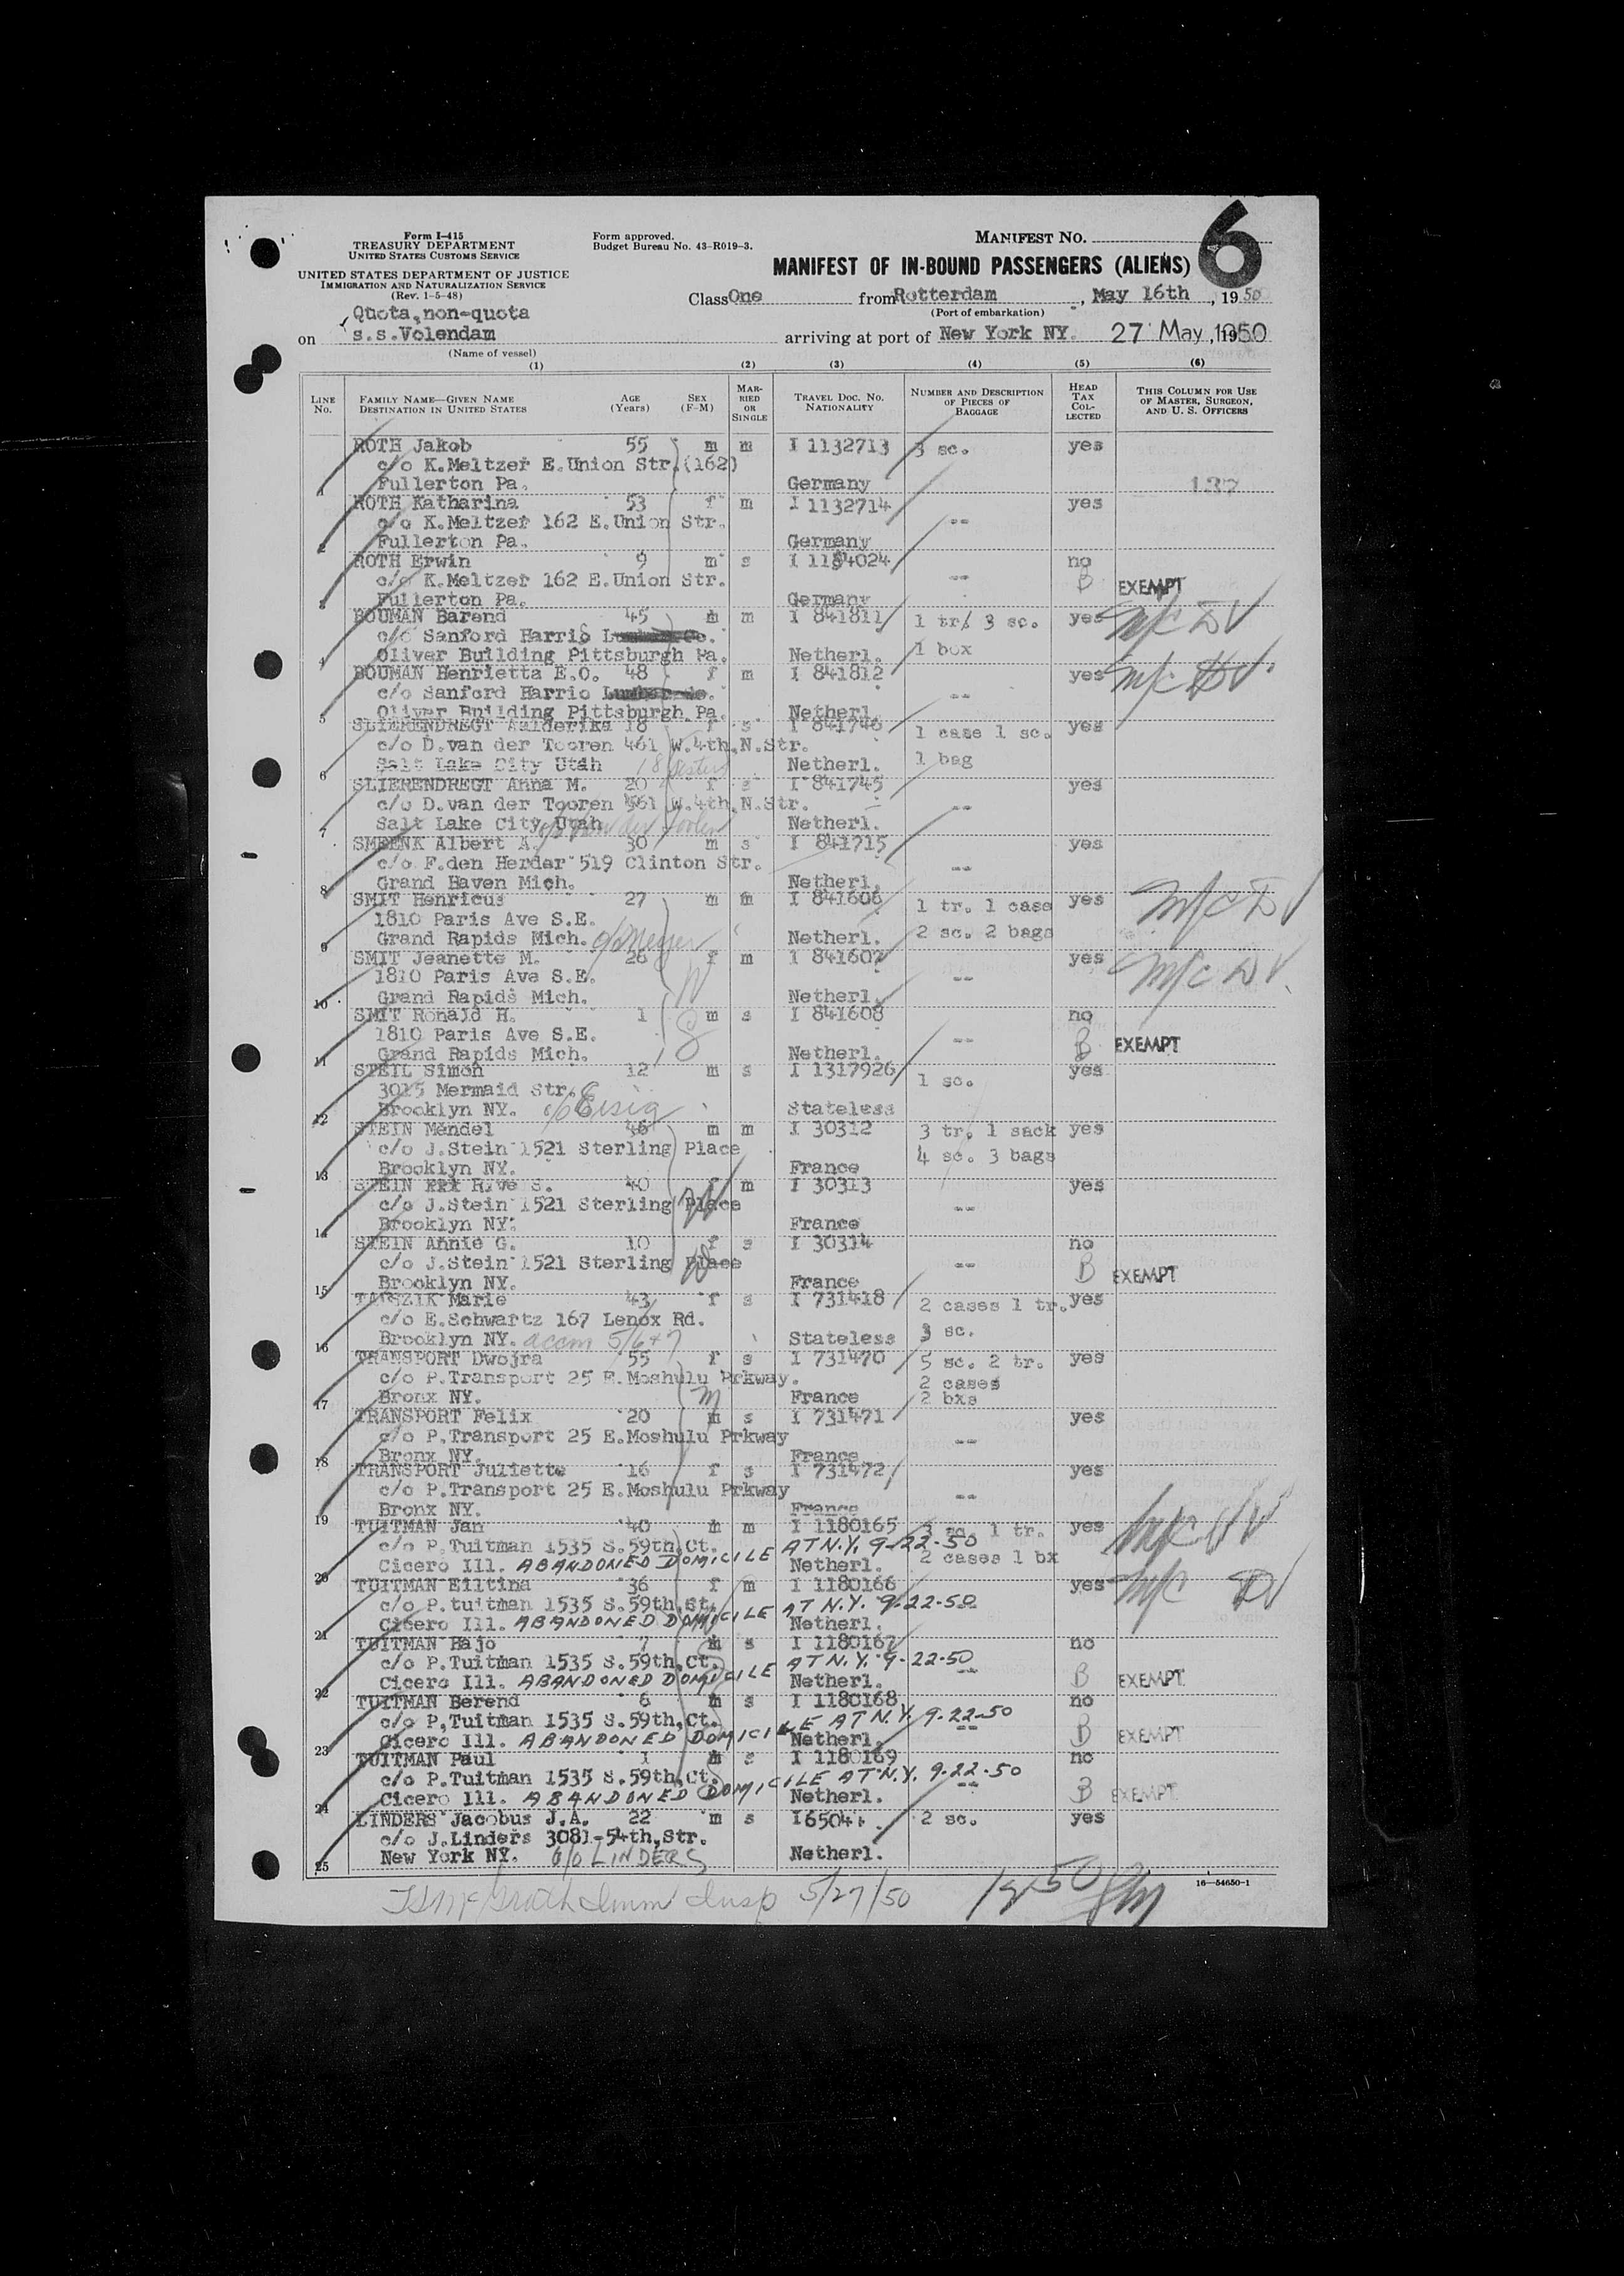 Form I-415
TREASURY DEPARTMENT
UNITED STATES CUSTOMS SERVICE
UNITED STATES DEPARTMENT OF JUSTICE
IMMIGRATION AND NATURALIZATION SERVICE
(Rev. 1-5-48)
Form approved.
Budget Bureau No. 43-R019-3.
MANIFEST NO.
6
MANIFEST OF IN-BOUND PASSENGERS (ALIENS)
Class One from Rotterdam, May 16th, 1950
(Port of embarkation)
Quota, non-quota
on s.s.Volendam arriving at port of New York NY. 27 May, 1950
(Name of vessel)
(1) (2) (3) (4) (5) (6)
LINE No. FAMILY NAME—GIVEN NAME DESTINATION IN UNITED STATES AGE (Years) SEX (F-M) MARRIED OR SINGLE TRAVEL DOC. NO. NATIONALITY NUMBER AND DESCRIPTION OF PIECES OF BAGGAGE HEAD TAX COLLECTED THIS COLUMN FOR USE OF MASTER, SURGEON, AND U. S. OFFICERS
ROTH Jakob 55 m m I 1132713 3 sc. yes
c/o K.Meltzer E.Union Str.(162)
1 Fullerton Pa. Germany 137
ROTH Katharina 53 f m I 1132714 yes
c/o K.Meltzer 162 E.Union Str. --
2 Fullerton Pa. Germany
ROTH Erwin 9 m s I 1184024 no
c/o K.Meltzer 162 E.Union Str. -- B EXEMPT
3 Fullerton Pa. Germany
BOUMAN Barend 45 m m I 841811 1 tr. 3 sc. yes
c/o Sanford Harris
4 Oliver Building Pittsburgh Pa. Netherl. 1 box
BOUMAN Henrietta E.O. 48 f m I 841812 yes
c/o Sanford Harrio Lumber --
5 Oliver Building Pittsburgh Pa. Netherl.
SLIERENDREGT Aalderika 18 f s I 841746 1 case 1 sc. yes
c/o D.van der Tooren 461 W.4th.N.Str.
6 Salt Lake City Utah sisters Netherl. 1 bag
SLIERENDREGT Anna M. 20 f s I 841745 yes
c/o D.van der Tooren 961 W.4th.N.Str. --
7 Salt Lake City Utah Netherl.
SMEENK Albert A. 30 m s I 841715 yes
c/o F.den Herder 519 Clinton Str. --
8 Grand Haven Mich. Netherl.
SMIT Henricus 27 m m I 841606 1 tr. 1 case yes
1810 Paris Ave S.E.
9 Grand Rapids Mich. Netherl. 2 sc. 2 bags
SMIT Jeanette M. 26 f m I 841607 yes
1810 Paris Ave S.E. --
10 Grand Rapids Mich. Netherl.
SMIT Ronald H. 1 m s I 841608 no
1810 Paris Ave S.E. -- B EXEMPT
11 Grand Rapids Mich. Netherl.
STEIL Simon 12 m s I 1317926 1 sc. yes
3015 Mermaid Str.
12 Brooklyn NY. Stateless
STEIN Mendel 46 m m I 30312 3 tr. 1 sack yes
c/o J.Stein 1521 Sterling Place 4 sc. 3 bags
13 Brooklyn NY. France
STEIN Rive S. 40 f m I 30313 yes
c/o J.Stein 1521 Sterling Place --
14 Brooklyn NY. France
STEIN Annie G. 10 f s I 30314 no
c/o J.Stein 1521 Sterling Place -- B EXEMPT
15 Brooklyn NY. France
Marie 43 f s I 731418 2 cases 1 tr. yes
c/o E.Schwartz 167 Lenox Rd. 3 sc.
16 Brooklyn NY. accom 5/6+7 Stateless
TRANSPORT Dwojra 55 f s I 731470 5 sc. 2 tr. yes
c/o P.Transport 25 E.Moshulu Prkway. 2 cases
17 Bronx NY. France 2 bxs
TRANSPORT Felix 20 m s I 731471 yes
c/o P.Transport 25 E.Moshulu Prkway --
18 Bronx NY. France
TRANSPORT Juliette 16 f s I 731472 yes
c/o P.Transport 25 E.Moshulu Prkway --
19 Bronx NY. France
TUITMAN Jan 40 m m I 1180165 3 sc. 1 tr. yes
c/o P.Tuitman 1535 S.59th.Ct. 2 cases 1 bx
20 Cicero Ill. ABANDONED DOMICILE AT N.Y. 9-22-50 Netherl.
TUITMAN Eiltina 36 f m I 1180166 yes
c/o P.tuitman 1535 S.59th.St. --
21 Cicero Ill. ABANDONED DOMICILE AT N.Y. 9-22-50 Netherl.
TUITMAN Hajo 7 m s I 1180167 no
c/o P.Tuitman 1535 S.59th.Ct. --
22 Cicero Ill. ABANDONED DOMICILE AT N.Y. 9-22-50 Netherl. B EXEMPT
TUITMAN Berend 6 m s I 1180168 no
c/o P.Tuitman 1535 S.59th.Ct. --
23 Cicero Ill. ABANDONED DOMICILE AT N.Y. 9-22-50 Netherl. B EXEMPT
TUITMAN Paul 1 m s I 1180169 no
c/o P.Tuitman 1535 S.59th.Ct. --
24 Cicero Ill. ABANDONED DOMICILE AT N.Y. 9-22-50 Netherl. B EXEMPT
LINDERS Jacobus J.A. 22 m s I 6504 2 sc. yes
c/o J.Linders 3081-54th.Str.
25 New York NY. c/o LINDERS Netherl.
16—54650-1
Imm Insp 5/27/50